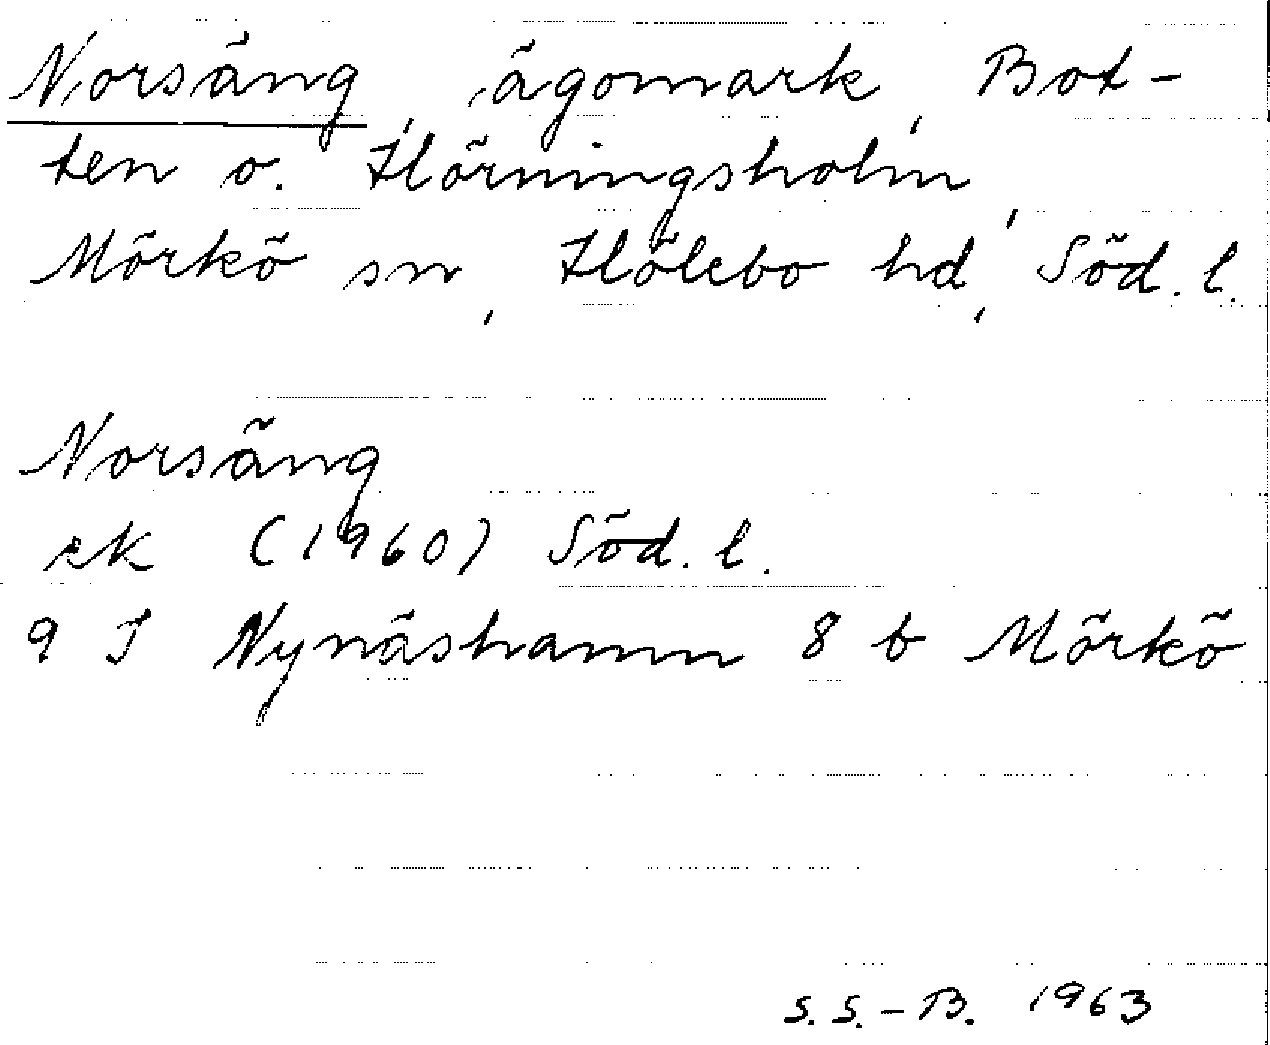 Norsäng, ägomark, Bot-
ten o. Hörningsholm,
Mörkö sn, Hölebo hd, Söd. l.
Norsäng
ek (1960) Söd. l.
9 I Nynäshamn 8 b Mörkö
S. S. - B. 1963